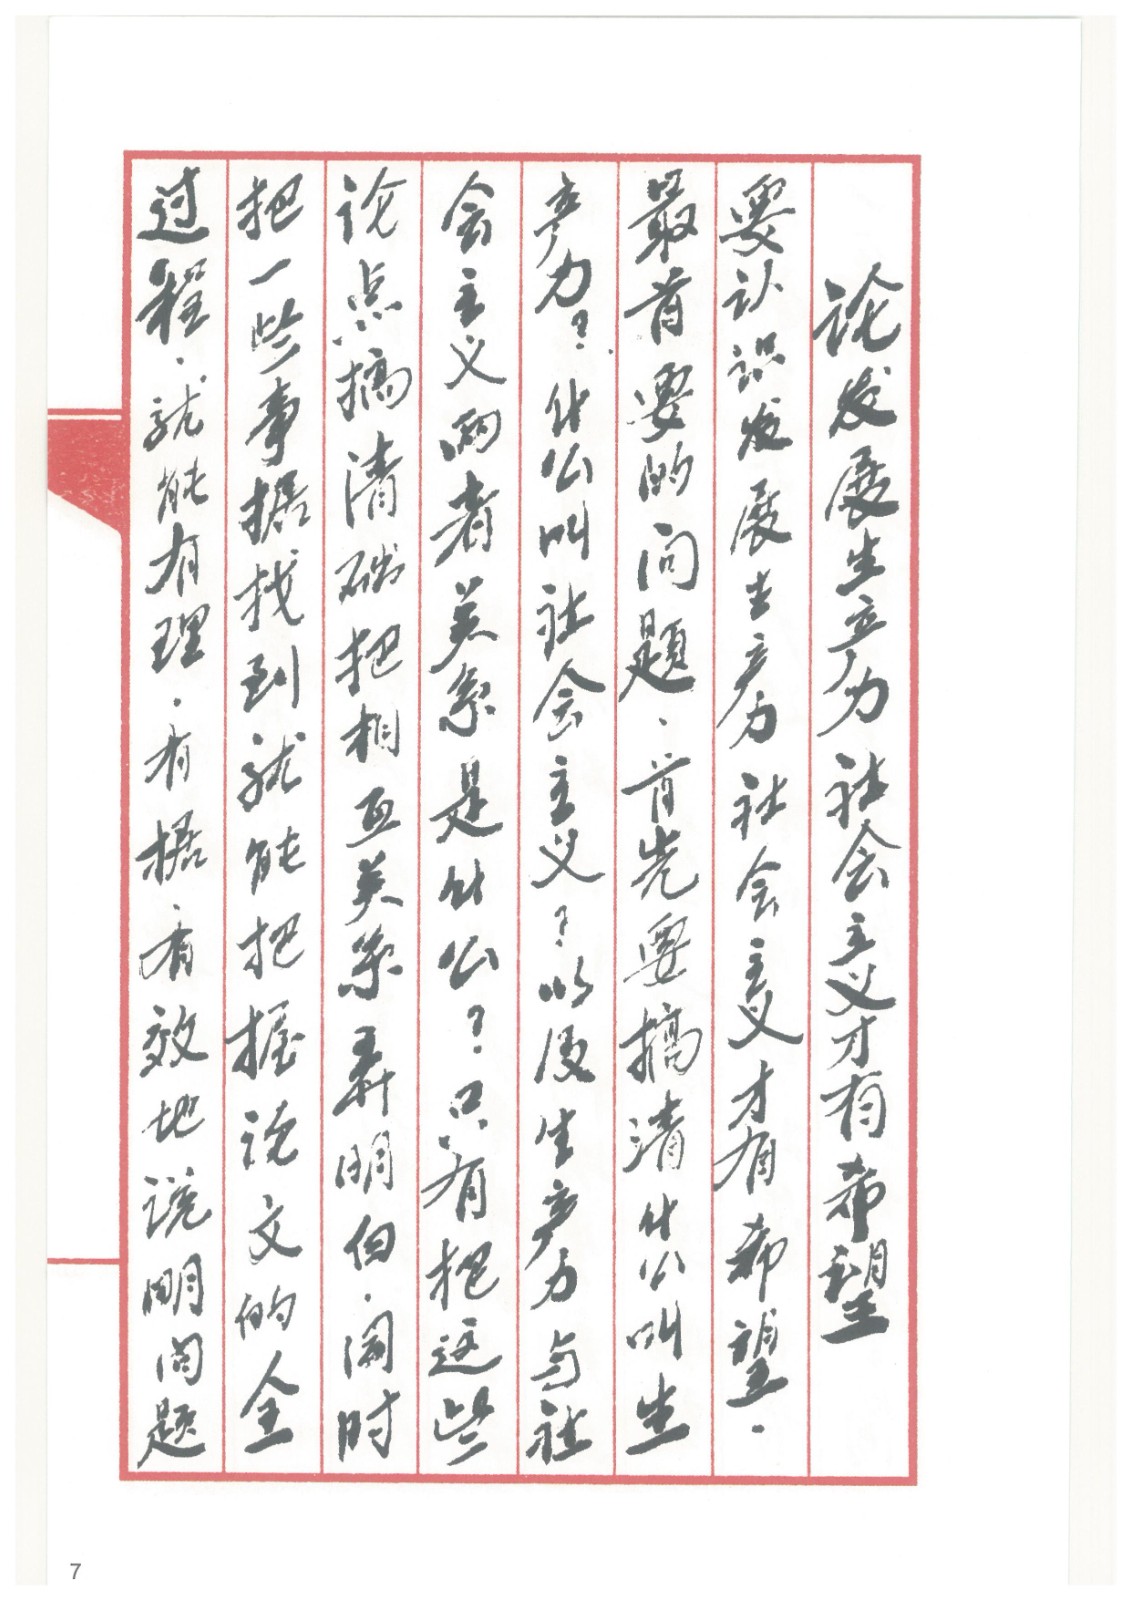 论发展生产力社会主义才有希望
要认识发展生产力社会主义才有希望.
最首要的问题.首先要搞清什么叫生
产力?什么叫社会主义?以及生产力与社
会主义两者关系是什么?只有把这些
论点搞清础把相互关系弄明白.同时
把一些事据找到就能把握论文的全
过程.就能有理.有据.有效地说明问题
7